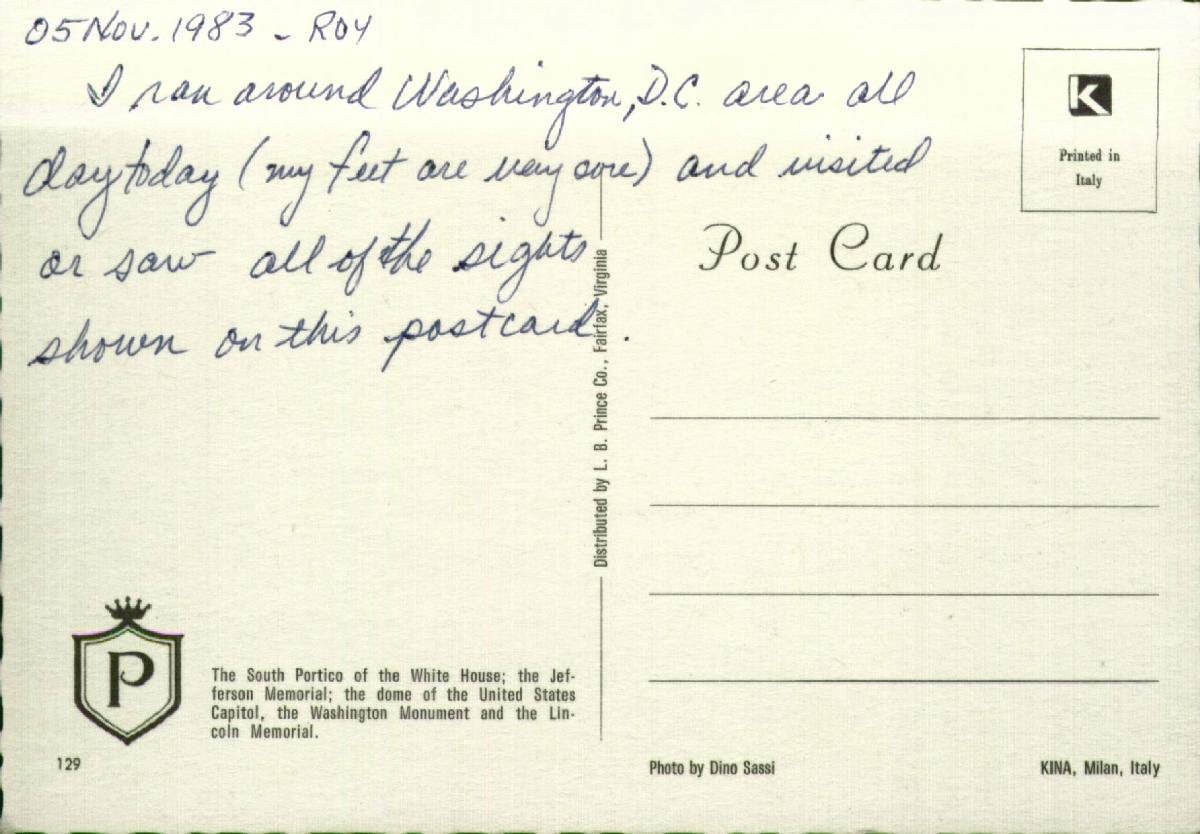 05 Nov. 1983 - ROY
I ran around Washington, D.C. area all
day today (my feet are very sore) and visited
or saw all of the sights
shown on this postcard.
K
Printed in
Italy
Post Card
Distributed by L. B. Prince Co., Fairfax, Virginia
P
The South Portico of the White House; the Jef-
ferson Memorial; the dome of the United States
Capitol, the Washington Monument and the Lin-
coln Memorial.
129
Photo by Dino Sassi
KINA, Milan, Italy